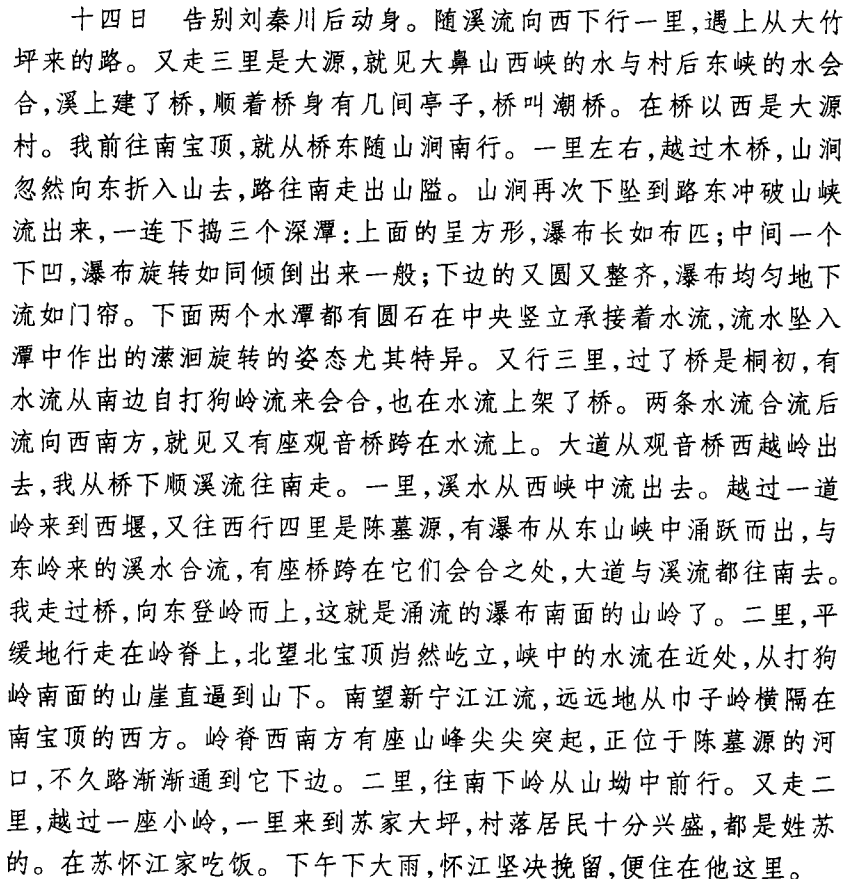 十四日　告别刘秦川后动身。随溪流向西下行一里,遇上从大竹
坪来的路。又走三里是大源,就见大鼻山西峡的水与村后东峡的水会
合,溪上建了桥,顺着桥身有几间亭子,桥叫潮桥。在桥以西是大源
村。我前往南宝顶,就从桥东随山涧南行。一里左右,越过木桥,山涧
忽然向东折入山去,路往南走出山隘。山涧再次下坠到路东冲破山峡
流出来,一连下捣三个深潭:上面的呈方形,瀑布长如布匹;中间一个
下凹,瀑布旋转如同倾倒出来一般;下边的又圆又整齐,瀑布均匀地下
流如门帘。下面两个水潭都有圆石在中央竖立承接着水流,流水坠入
潭中作出的潆洄旋转的姿态尤其特异。又行三里,过了桥是桐初,有
水流从南边自打狗岭流来会合,也在水流上架了桥。两条水流合流后
流向西南方,就见又有座观音桥跨在水流上。大道从观音桥西越岭出
去,我从桥下顺溪流往南走。一里,溪水从西峡中流出去。越过一道
岭来到西堰,又往西行四里是陈墓源,有瀑布从东山峡中涌跃而出,与
东岭来的溪水合流,有座桥跨在它们会合之处,大道与溪流都往南去。
我走过桥,向东登岭而上,这就是涌流的瀑布南面的山岭了。二里,平
缓地行走在岭脊上,北望北宝顶岿然屹立,峡中的水流在近处,从打狗
岭南面的山崖直逼到山下。南望新宁江江流,远远地从巾子岭横隔在
南宝顶的西方。岭脊西南方有座山峰尖尖突起,正位于陈墓源的河
口,不久路渐渐通到它下边。二里,往南下岭从山坳中前行。又走二
里,越过一座小岭,一里来到苏家大坪,村落居民十分兴盛,都是姓苏
的。在苏怀江家吃饭。下午下大雨,怀江坚决挽留,便住在他这里。